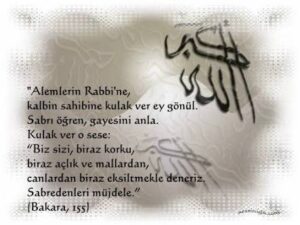 الله اكبر
"Alemlerin Rabbi'ne,
kalbin sahibine kulak ver ey gönül.
Sabrı öğren, gayesini anla.
Kulak ver o sese:
“Biz sizi, biraz korku,
biraz açlık ve mallardan,
canlardan biraz eksiltmekle deneriz.
Sabredenleri müjdele.”
(Bakara, 155)